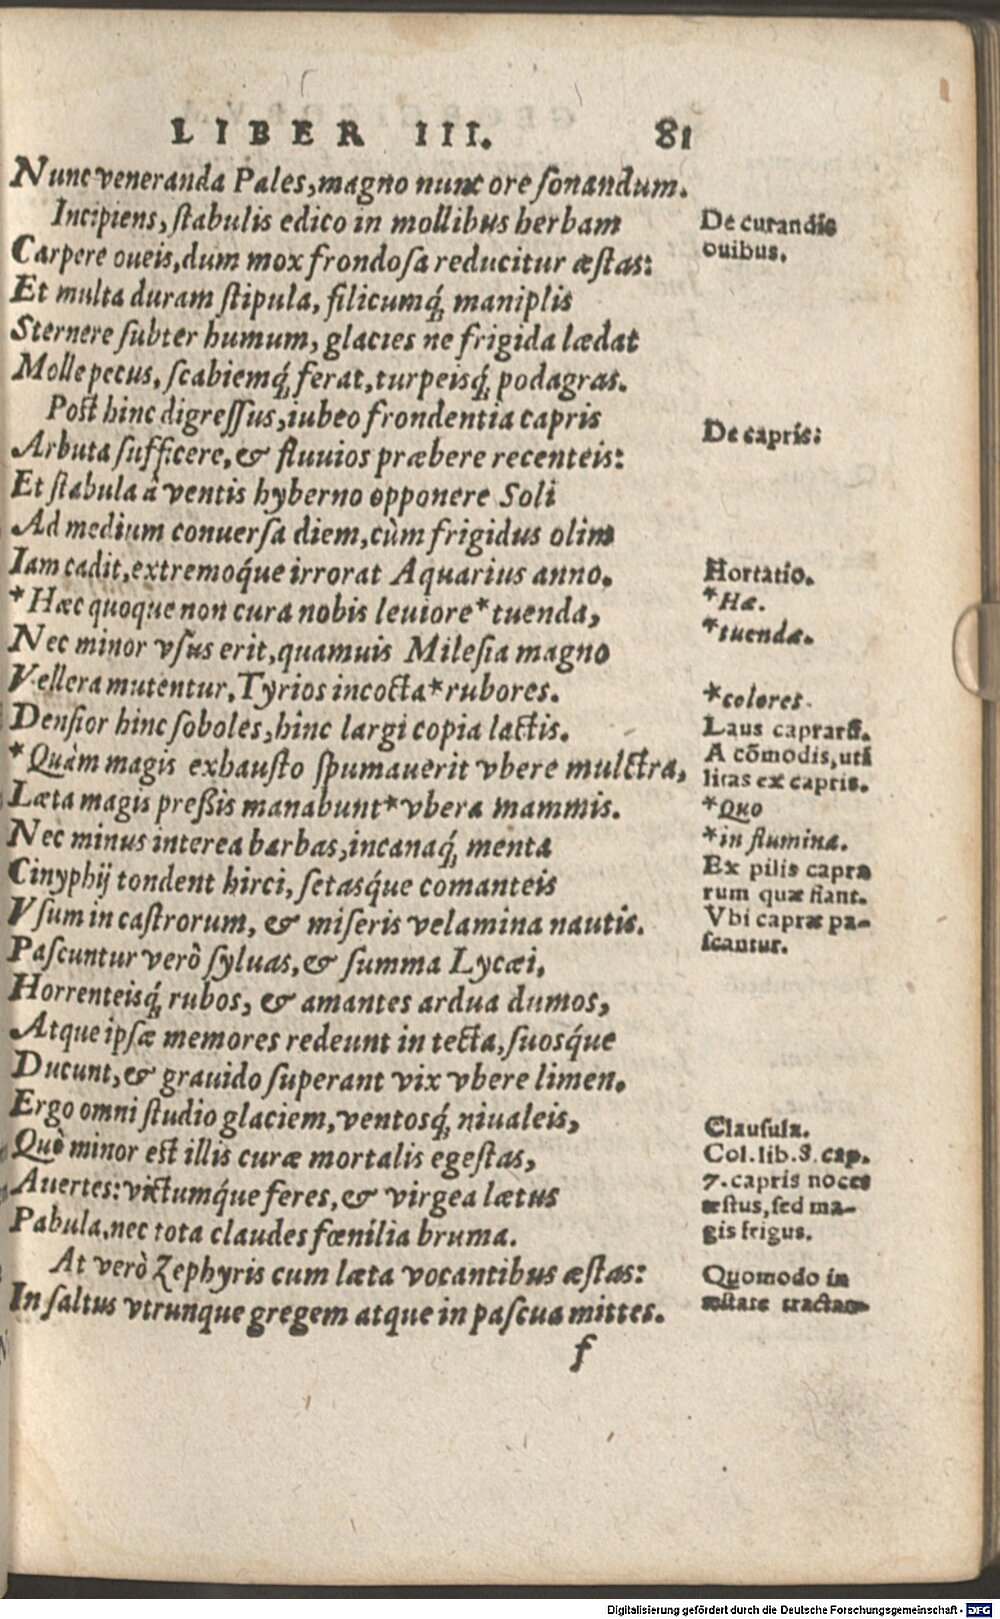 LIBER III. 81
Nunc veneranda Pales, magno nunc ore ſonandum.
Incipiens, ſtabulis edico in mollibus herbam
Carpere oueis, dum mox frondoſa reducitur æſtas:
Et multa duram ſtipula, filicumq́; maniplis
Sternere ſubter humum, glacies ne frigida lædat
Molle pecus, ſcabiemq́; ferat, turpeisq́; podagras.
Poſt hinc digreſſus, iubeo frondentia capris
Arbuta ſufficere, & fluuios præbere recenteis:
Et ſtabula à ventis hyberno opponere Soli
Ad medium conuerſa diem, cùm frigidus olim
Iam cadit, extremoq́ue irrorat Aquarius anno.
*Hæc quoque non cura nobis leuiore *tuenda,
Nec minor vſus erit, quamuis Mileſia magno
Vellera mutentur, Tyrios incocta *rubores.
Denſior hinc ſoboles, hinc largi copia lactis.
*Quàm magis exhauſto ſpumauerit vbere mulctra,
Læta magis preßis manabunt *vbera mammis.
Nec minus interea barbas, incanaq́; menta
Cinyphij tondent hirci, ſetasq́ue comanteis
Vſum in caſtrorum, & miſeris velamina nautis.
Paſcuntur verò ſyluas, & ſumma Lycæi,
Horrenteisq́; rubos, & amantes ardua dumos,
Atque ipſæ memores redeunt in tecta, ſuosq́ue
Ducunt, & grauido ſuperant vix vbere limen.
Ergo omni ſtudio glaciem, ventosq́; niualeis,
Quò minor eſt illis curæ mortalis egeſtas,
Auertes: victumq́ue feres, & virgea lætus
Pabula, nec tota claudes fœnilia bruma.
At verò Zephyris cum læta vocantibus æſtas:
In ſaltus vtrunque gregem atque in paſcua mittes.
f
De curandis
ouibus.
De capris:
Hortatio.
*Hæ.
*tuendæ.
*colores.
Laus caprarū.
A cōmodis, uti
litas ex capris.
*Quo
*in flumina.
Ex pilis capra
rum quæ fiant.
Vbi capræ pa-
ſcantur.
Clauſula.
Col. lib. 8. cap.
7. capris noces
æſtus, ſed ma-
gis frigus.
Quomodo in
æſtate
Digitalisierung gefördert durch die Deutsche Forschungsgemeinschaft - DFG